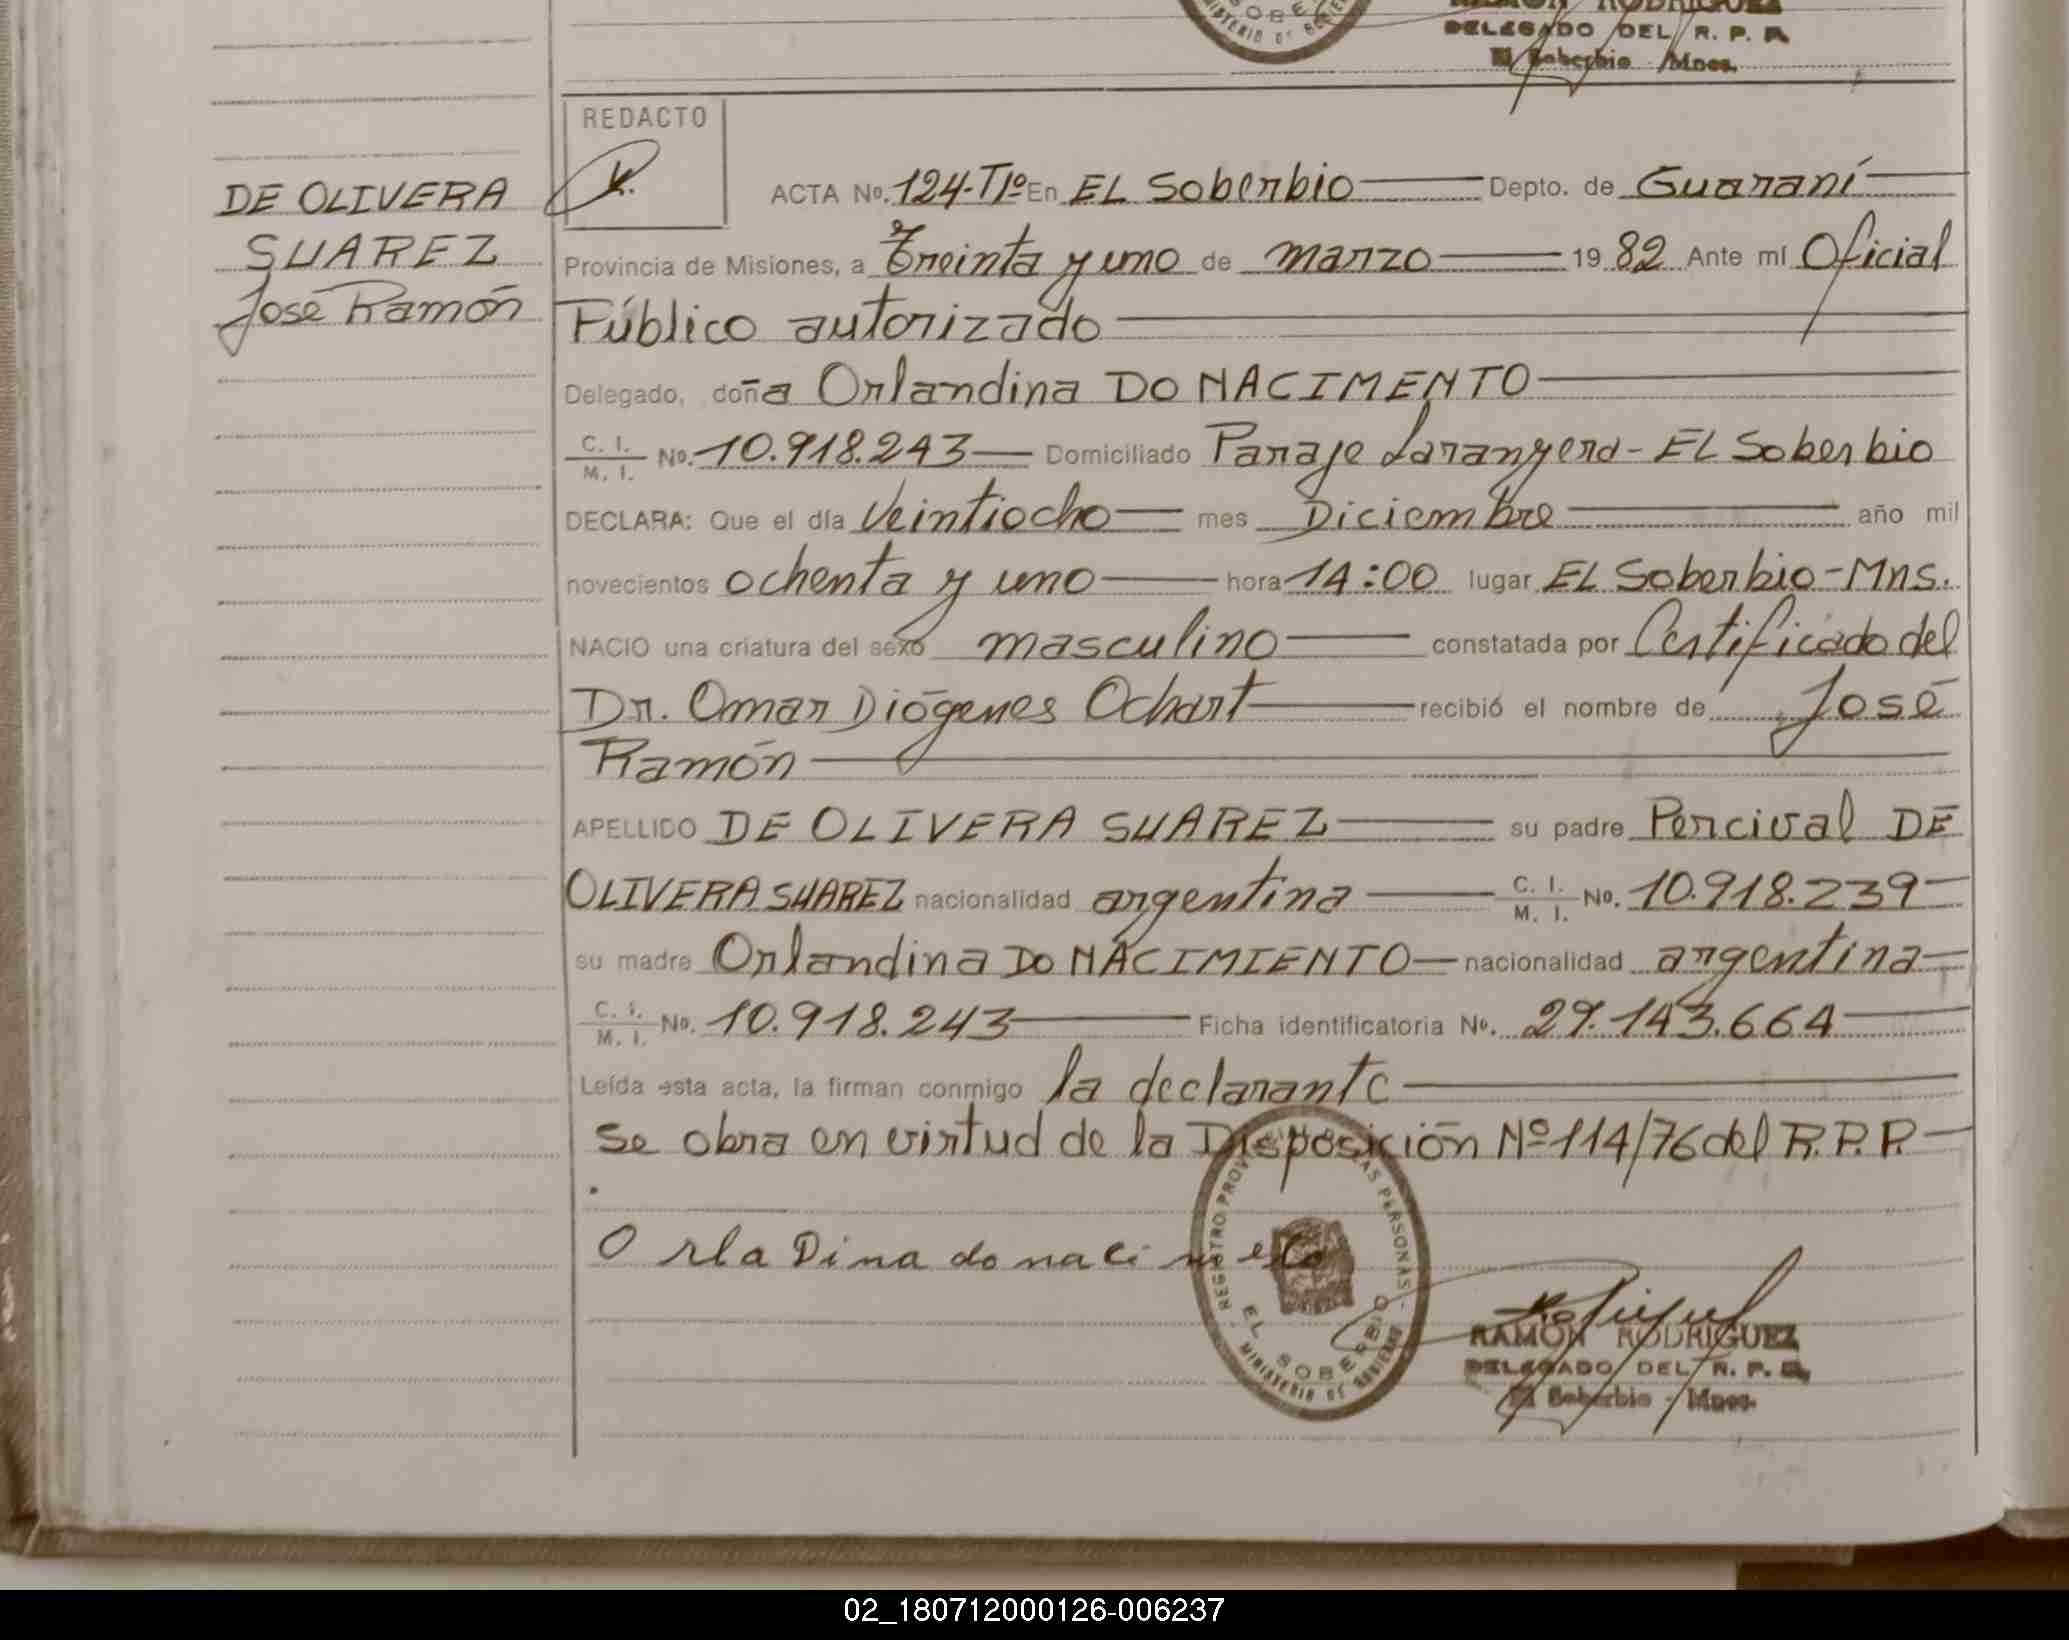 RAMÓN RODRIGUEZ
DELEGADO DEL R. P. P.
El Soberbio - Mnes.
REDACTO
DE OLIVERA
SUAREZ
José Ramón
ACTA No. 124-T1º En EL Soberbio Depto. de Guaraní
Provincia de Misiones, a Treinta y uno de marzo 19 82 Ante mí Oficial
Público autorizado
Delegado, doña Orlandina DO NACIMENTO
C. I. / M. I. No. 10.918.243 Domiciliado Paraje Laranyera - EL Soberbio
DECLARA: Que el día Veintiocho mes Diciembre año mil
novecientos ochenta y uno hora 14:00 lugar EL Soberbio - Mns.
NACIO una criatura del sexo masculino constatada por Certificado del
Dr. Omar Diógenes Ochart recibió el nombre de José
Ramón
APELLIDO DE OLIVERA SUAREZ su padre Percival DE
OLIVERA SUAREZ nacionalidad argentina C. I. / M. I. No. 10.918.239
su madre Orlandina DO NACIMIENTO nacionalidad argentina
C. I. / M. I. No. 10.918.243 Ficha identificatoria No. 29.143.664
Leída esta acta, la firman conmigo la declarante
Se obra en virtud de la Disposición Nº 114/76 del R.P.P.
OrlaDina do nacimeto
REGISTRO PROVINCIAL DE LAS PERSONAS
EL SOBERBIO
MINISTERIO DE GOBIERNO
RAMÓN RODRIGUEZ
DELEGADO DEL R. P. P.
El Soberbio - Mnes.
02_180712000126-006237